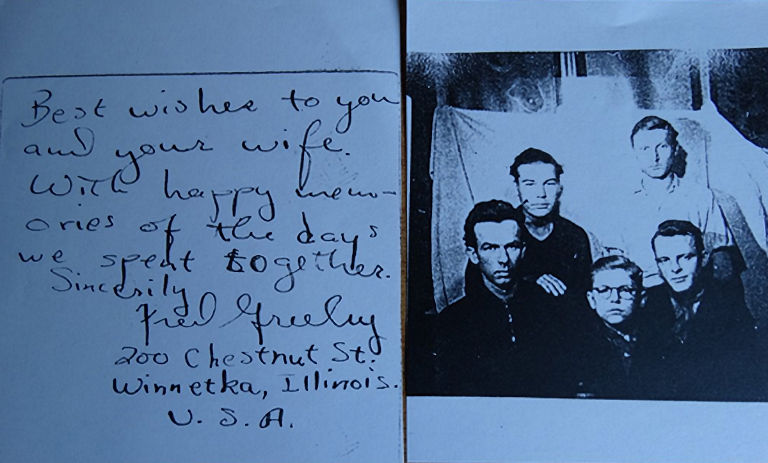 Best wishes to you
and your wife.
With happy mem-
ories of the days
we spent together.
Sincerily
Fred Greeley
200 Chestnut St.
Winnetka, Illinois.
U. S. A.